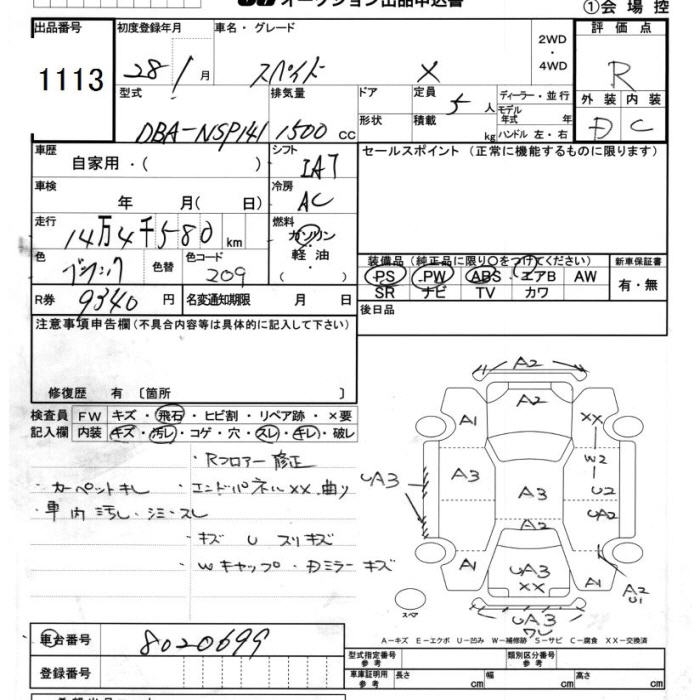 オークション出品申込書
①会場控
出品番号 初度登録年月 車名・グレード 2WD・4WD 評価点
1113 28 1月 スペイド X R
外装 内装
D C
型式 排気量 ドア 定員 5人 ディーラー・並行
モデル年式 年
DBA-NSP141 1500cc 形状 積載 kg ハンドル 左・右
車歴 自家用・( ) シフト IAT セールスポイント (正常に機能するものに限ります)
車検 年 月( 日) 冷房 AC
走行 14万4千580km 燃料 ガソリン・軽油・( )
色 ブラック 色替 色コード 209
装備品 (純正品に限り○をつけてください) 新車保証書
PS PW ABS エアB AW 有・無
SR ナビ TV カワ
R券 9340円 名変通知期限 月 日 後日品
注意事項申告欄(不具合内容等は具体的に記入して下さい)
修復歴 有 〔箇所 〕
検査員記入欄 FW キズ・飛石・ヒビ割・リペア跡・×要
内装 キズ・汚レ・コゲ・穴・スレ・キレ・破レ
・Rフロアー修正
・カーペットキレ ・エンドパネルXX.曲り
・車内汚レ・シミ・スレ
・キズ U スリキズ
・Wキャップ・Dミラーキズ
A2
A2
A1 XX
W2
UA3 A3 A3 U2
UA2
A2
A1 UA3 A1 A2
XX U1
スペア UA3
ワレ
A-キズ E-エクボ U-凹み W-補修跡 S-サビ C-腐食 XX-交換済
車台番号 8020699
型式指定番号 参考 類別区分番号 参考
登録番号 車庫証明用 参考 長さ cm 幅 cm 高さ cm